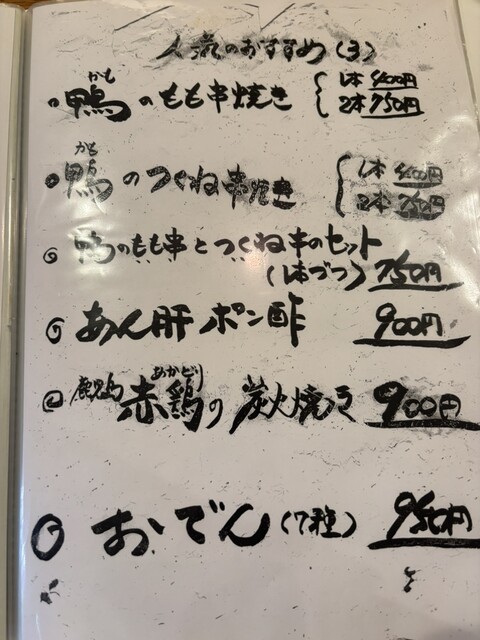 人気のおすすめ(3)
かも
鴨のもも串焼き 1本 400円
2本 750円
かも
鴨のつくね串焼き 1本 400円
2本 750円
鴨のもも串とつくね串のセット
(1本づつ) 750円
あん肝ポン酢 900円
あかどり
鹿児島赤鶏の炭火焼き 900円
おでん(7種) 950円